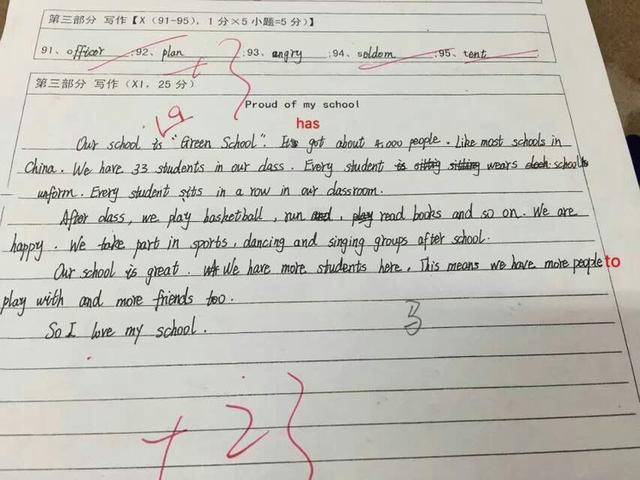 第三部分 写作【X(91-95),1分×5小题=5分)】
91、officer ;92、plan ;93、angry ;94、seldom ;95、tent
第三部分 写作(XI,25分)
Proud of my school
19
has
Our school is "Green School". It's got about 4.000 people. Like most schools in
China. We have 33 students in our class. Every student wears school's
unform. Every student sits in a row in our classroom.
After class, we play basketball, run, read books and so on. We are
happy. We take part in sports, dancing and singing groups after school.
Our school is great. We have more students here. This means we have more people to
play with and more friends too.
So I love my school.
3
+2